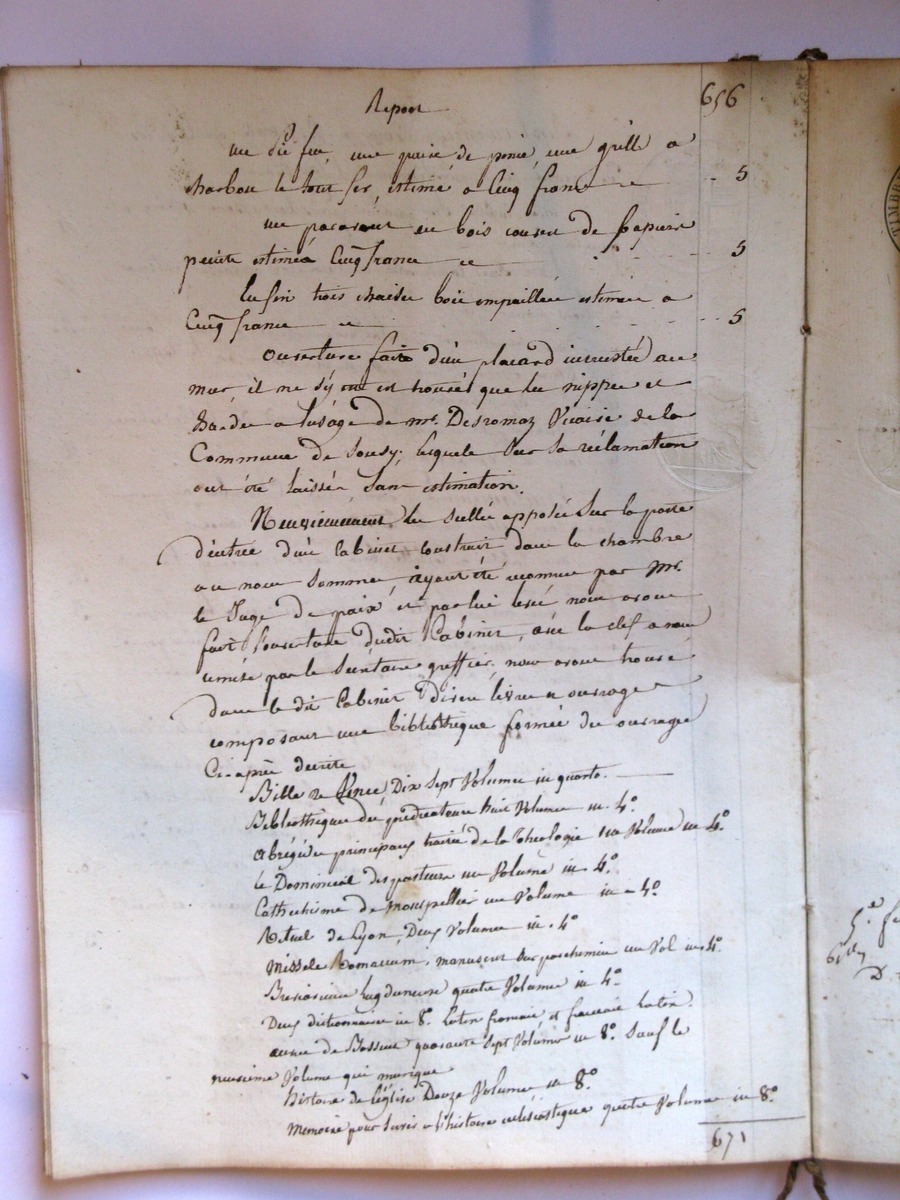 Report 656
un dit feu, une paire de pince, une grille a
charbon le tout fer, estimé a Cinq franc 5
un paravent en bois couvert de papier
peint estimé a Cinq francs 5
Enfin trois chaises bois empaillée estimée a
Cinq francs 5
Ouverture faite d'un placard incrusté au
mur, il ne s'y est trouvé que les nippes et
hardes a l'usage de mr. Desromaz Vicaire de la
Commune de Soucy, lesquels sur sa réclamation
ont été laissés sans estimation.
Neuvièmement les scellés apposés sur la porte
d'entrée d'un Cabinet construit dans la chambre
ou nous sommes, ayant été reconnu par Mr.
le Juge de paix, et par lui levé nous avons
fait l'ouverture dudit Cabinet, avec la clef a nous
remise par le Secrétaire greffier, nous avons trouvé
dans le dit Cabinet divers livres et ouvrages
composant une bibliothèque formée des ouvrages
Ci-après décrits
Bible de Vence Dix Sept Volumes in quarto.
Bibliothèque des prédicateurs huit Volumes in-4°.
Abrégé des principaux traités de la théologie un Volume in 4°.
le Dominical des pasteurs un Volume in-4°.
Cathechisme de Montpellier un Volume in-4°
Rituel de Lyon, Deux Volumes in-4°
Missele Romanum, manuscrit sur parchemin un Vol in-4°.
Breviarium lugdunense quatre Volumes in 4°.
Deux dictionnaires in 8°. latin francais et francais latin.
de Bossuet quarante sept Volumes in 8°. Sauf le
neuvième Volume qui manque
histoire de l'église Douze Volumes in 8°.
Mémoires pour servir a l'histoire ecclésiastique quatre Volumes in 8°.
671
TIMBR